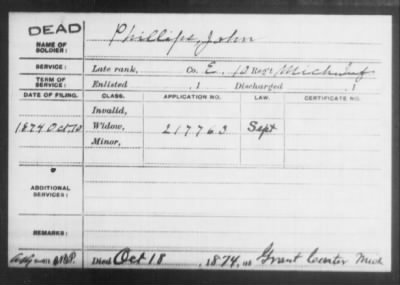 DEAD
NAME OF SOLDIER: Phillips, John
SERVICE: Late rank, Co. E, 13 Reg't Mich Inf
TERM OF SERVICE: Enlisted , 1 Discharged , 1
DATE OF FILING. CLASS. APPLICATION NO. LAW. CERTIFICATE NO.
Invalid,
1874 Oct Widow, 217763 Sept
Minor,
ADDITIONAL SERVICES:
REMARKS:
Died Oct 18, 1874, at Grant Center Mich